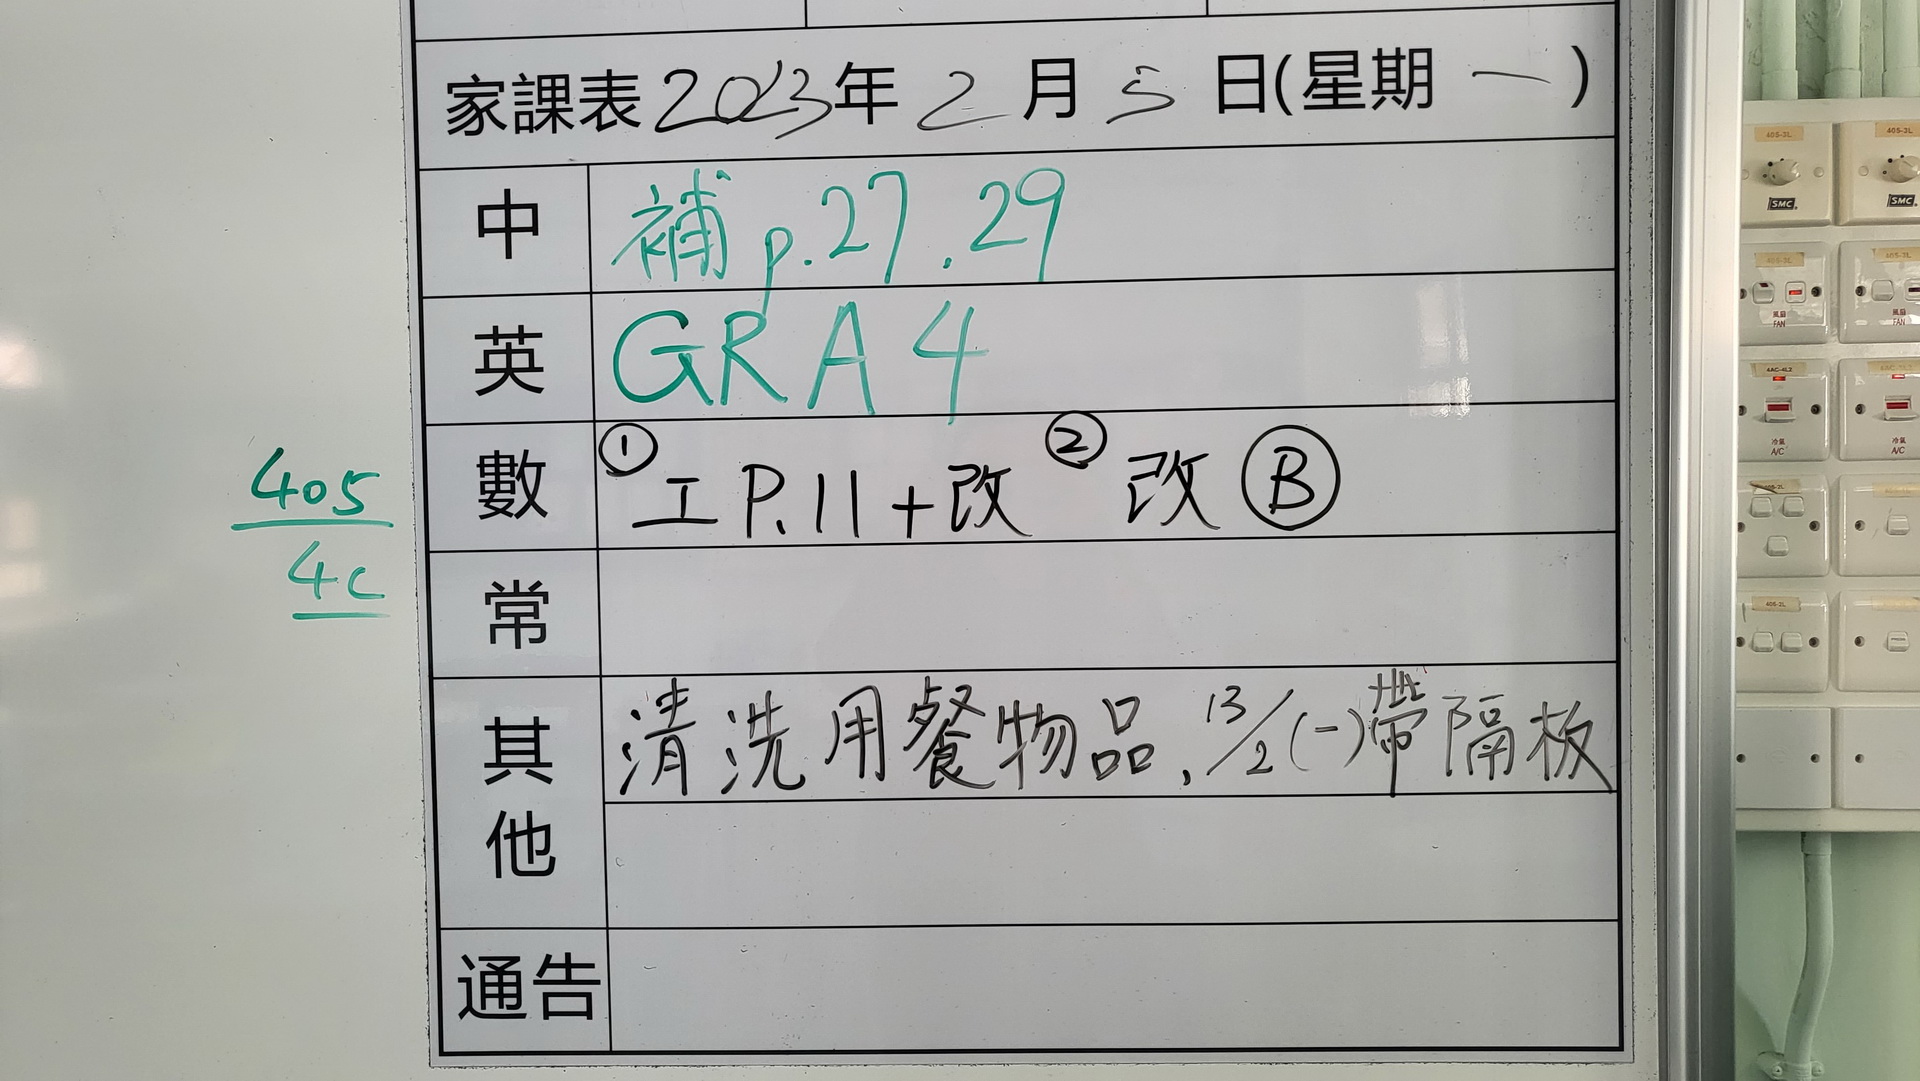 家課表 2023年 2 月 5 日(星期 一 )
中 補 p.27.29
英 GRA 4
數 ① 工 P.11 + 改 ② 改 Ⓑ
405
4C
常
其他 清洗用餐物品, 13/2 (一) 帶隔板
通告
405-3L
405-3L
SMC
SMC
405-3L
405-3L
風扇
FAN
風扇
FAN
4AC-4L2
冷氣
A/C
冷氣
A/C
405-2L